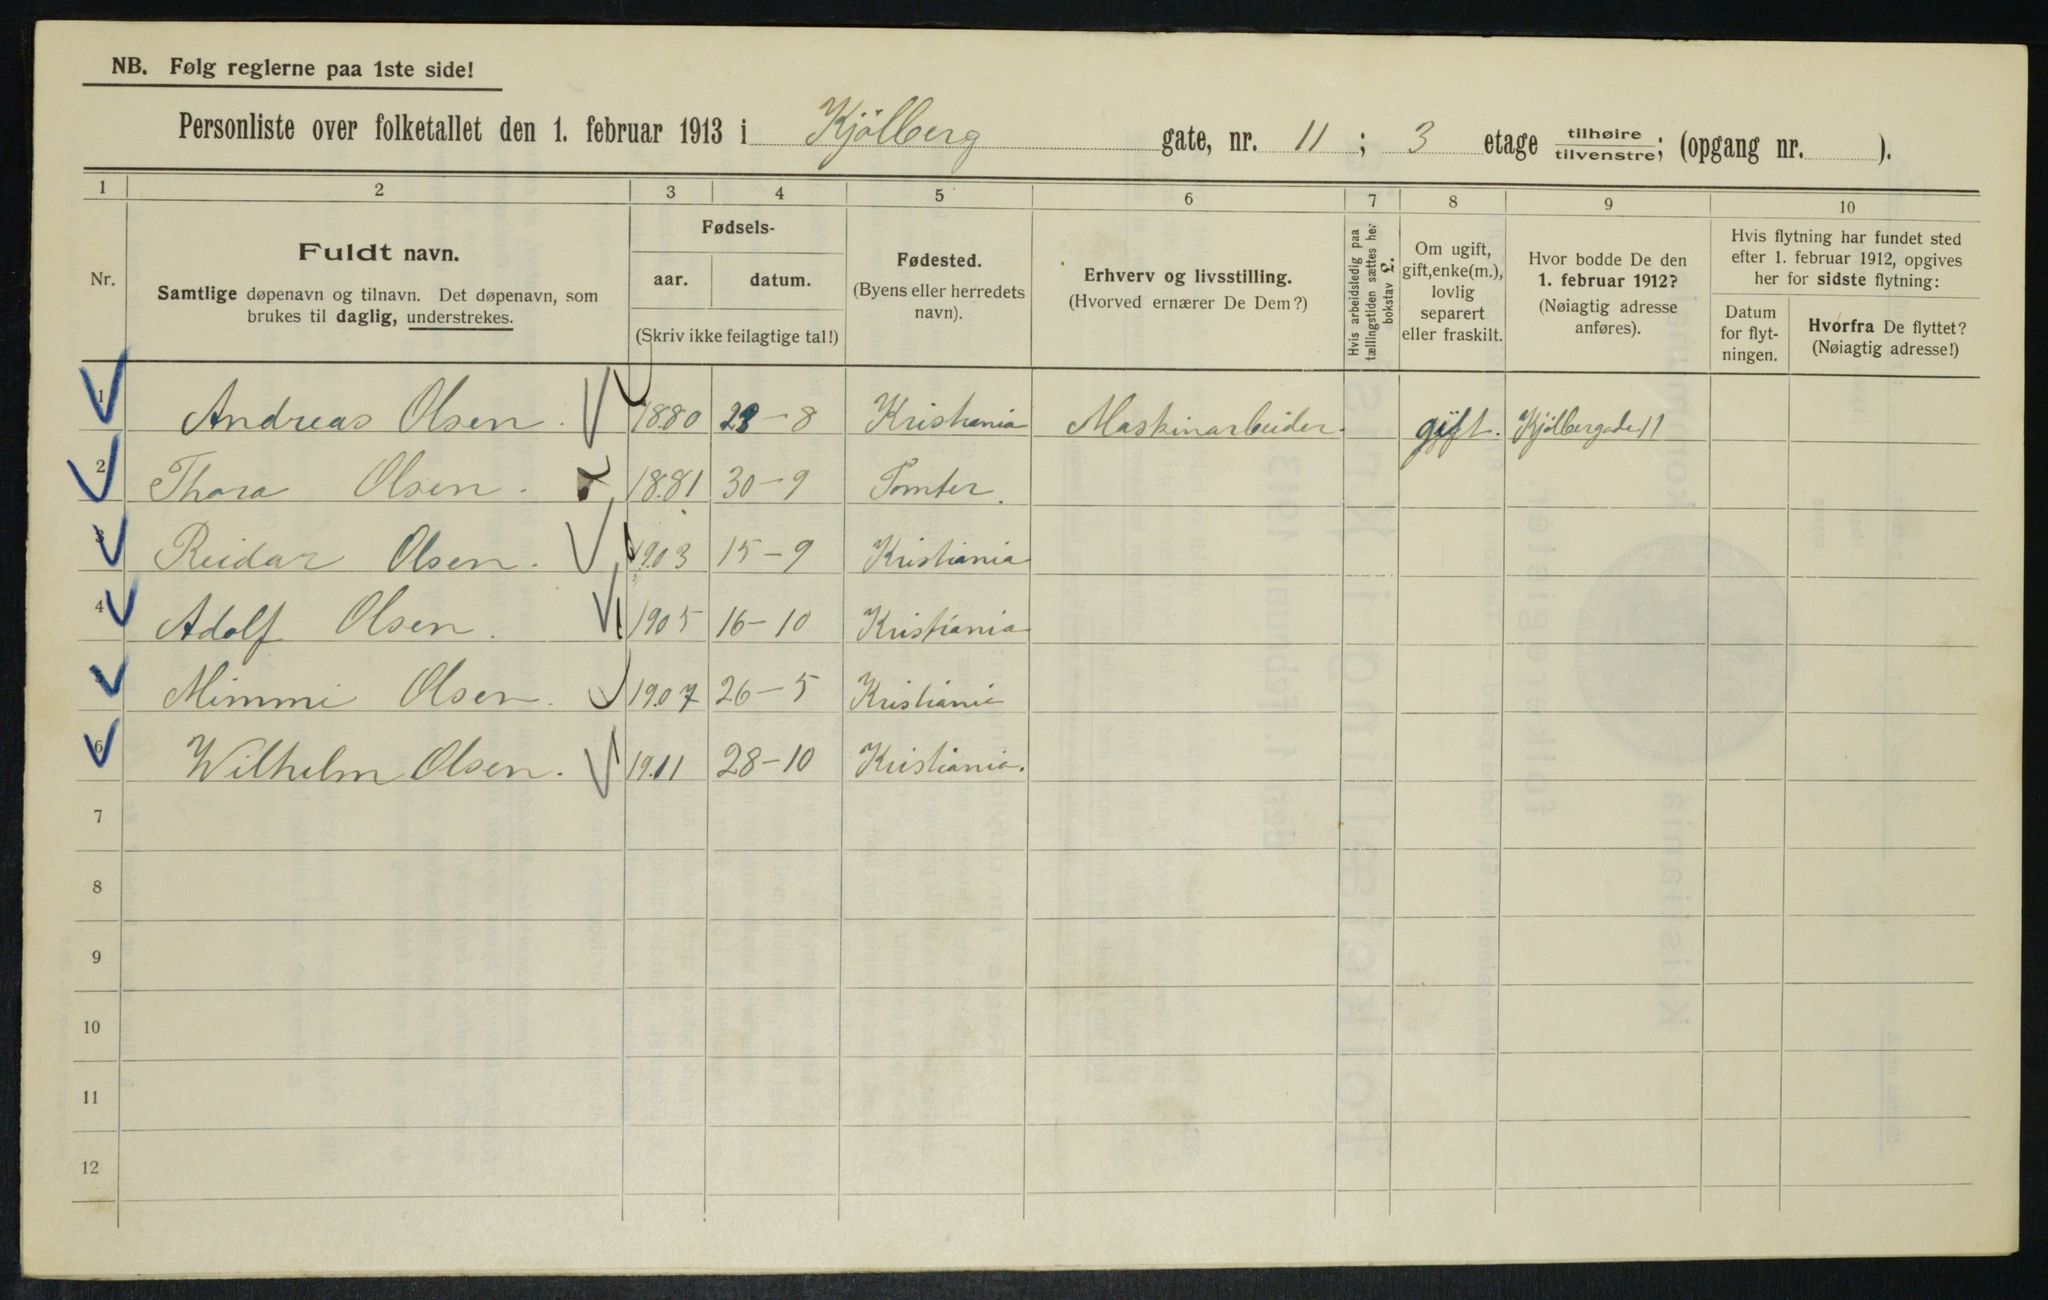 NB. Følg reglerne paa 1ste side!
Personliste over folketallet den 1. februar 1913 i Kjølberg gate, nr. 11 ; 3 etage tilhøire/tilvenstre; (opgang nr. ).
1 2 3 4 5 6 7 8 9 10
Nr.
Fuldt navn.
Samtlige døpenavn og tilnavn. Det døpenavn, som
brukes til daglig, understrekes.
Fødsels-
aar. datum.
(Skriv ikke feilagtige tal!)
Fødested.
(Byens eller herredets
navn).
Erhverv og livsstilling.
(Hvorved ernærer De Dem?)
Hvis arbeidsledig paa
tællingstiden sættes her
bokstav L.
Om ugift,
gift, enke(m.),
lovlig
separert
eller fraskilt.
Hvor bodde De den
1. februar 1912?
(Nøiagtig adresse
anføres).
Hvis flytning har fundet sted
efter 1. februar 1912, opgives
her for sidste flytning:
Datum
for flyt-
ningen.
Hvorfra De flyttet?
(Nøiagtig adresse!)
1 Andreas Olsen. 1880 – 8 Kristiania Maskinarbeider. gift. Kjølbergade 11
2 Thora Olsen. 1881 30–9 Tomter.
3 Reidar Olsen. 1903 15–9 Kristiania
4 Adolf Olsen. 1905 16–10 Kristiania
5 Mimmi Olsen. 1907 26–5 Kristiania
6 Wilhelm Olsen. 1911 28–10 Kristiania.
7
8
9
10
11
12